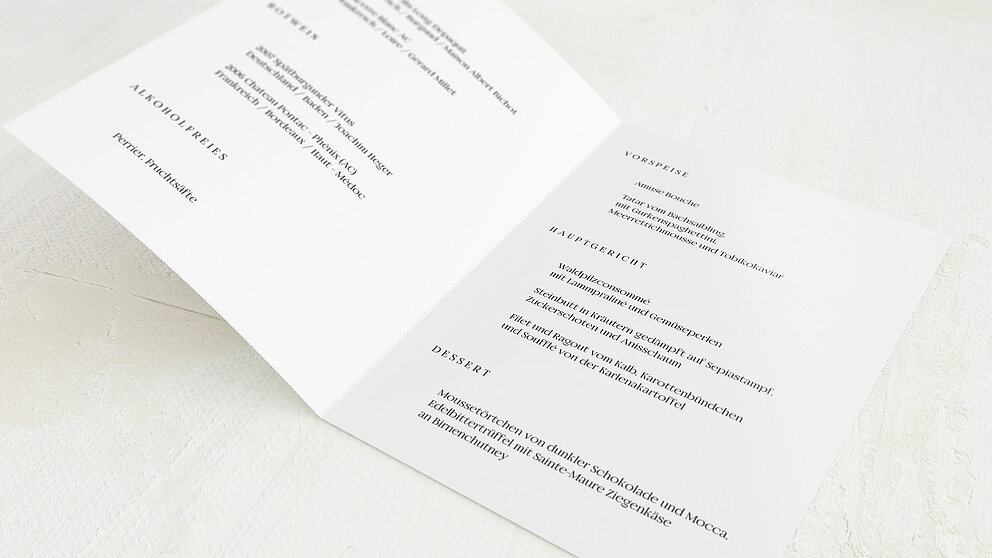 Maison Albert Bichot
Frankreich / Loire / Gerard Millet
ROTWEIN
2007 Spätburgunder Vitus
Deutschland / Baden / Joachim Heger
2006 Chateau Pontac - Phénix (AC)
Frankreich / Bordeaux / Haut - Médoc
ALKOHOLFREIES
Perrier, Fruchtsäfte
VORSPEISE
Amuse Bouche
Tatar vom Bachsaibling,
mit Gurkenspaghettini,
Meerrettichmousse und Tobikokaviar
HAUPTGERICHT
Waldpilzconsommé
mit Lammpraliné und Gemüseperlen
Steinbutt in Kräutern gedämpft auf Sepiastampf,
Zuckerschoten und Anisschaum
Filet und Ragout vom Kalb, Karottenbündchen
und Soufflé von der Karlenakartoffel
DESSERT
Moussetörtchen von dunkler Schokolade und Mocca,
Edelbittertrüffel mit Sainte-Maure Ziegenkäse
an Birnenchutney